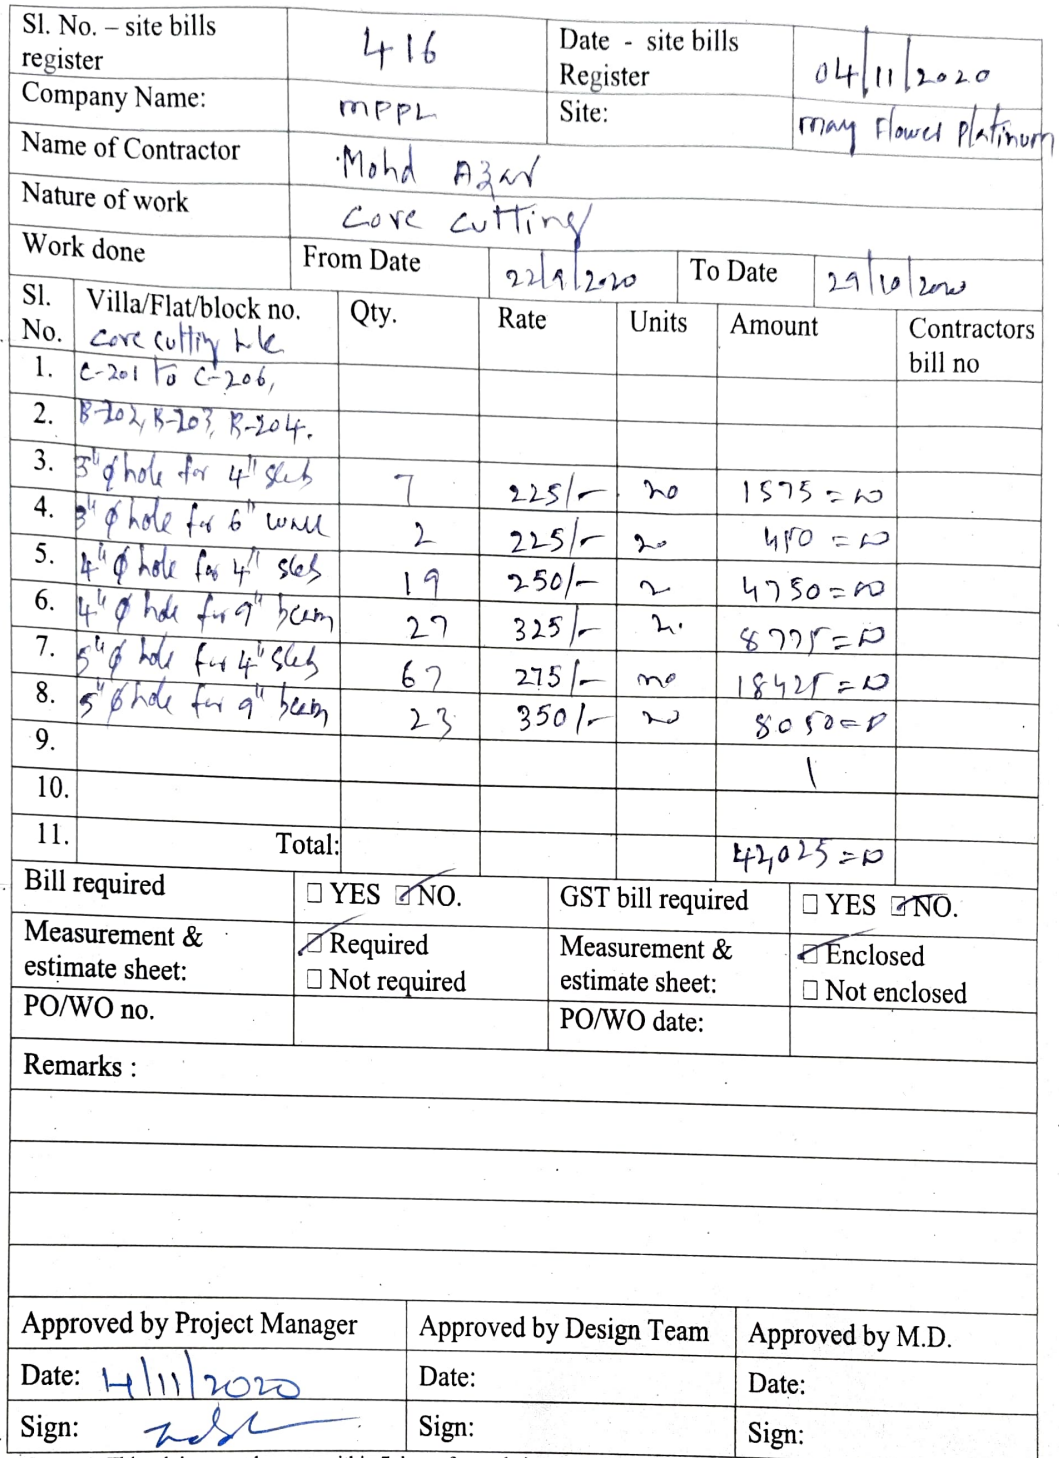 Sl. No. – site bills register 416 Date - site bills Register 04/11/2020
Company Name: MPPL Site: May Flower Platinum
Name of Contractor Mohd Azar
Nature of work Core cutting
Work done From Date 22/9/2020 To Date 29/10/2020
Sl. No. Villa/Flat/block no. Qty. Rate Units Amount Contractors bill no
Core cutting
1. C-201 to C-206,
2. B-202, B-203, B-204.
3. 3"ϕ hole for 4" slab 7 225/- no 1575=00
4. 3"ϕ hole for 6" wall 2 225/- no 450=00
5. 4"ϕ hole for 4" slab 19 250/- 4750=00
6. 4"ϕ hole for 9" beam 27 325/- 8775=00
7. 5"ϕ hole for 4" slab 67 275/- no 18425=00
8. 5"ϕ hole for 9" beam 23 350/- no 8050=00
9.
10.
11. Total: 42,025=00
Bill required ☐ YES ☑ NO. GST bill required ☐ YES ☑ NO.
Measurement & estimate sheet: ☑ Required ☐ Not required Measurement & estimate sheet: ☑ Enclosed ☐ Not enclosed
PO/WO no. PO/WO date:
Remarks :
Approved by Project Manager Approved by Design Team Approved by M.D.
Date: 4/11/2020 Date: Date:
Sign: Sign: Sign: